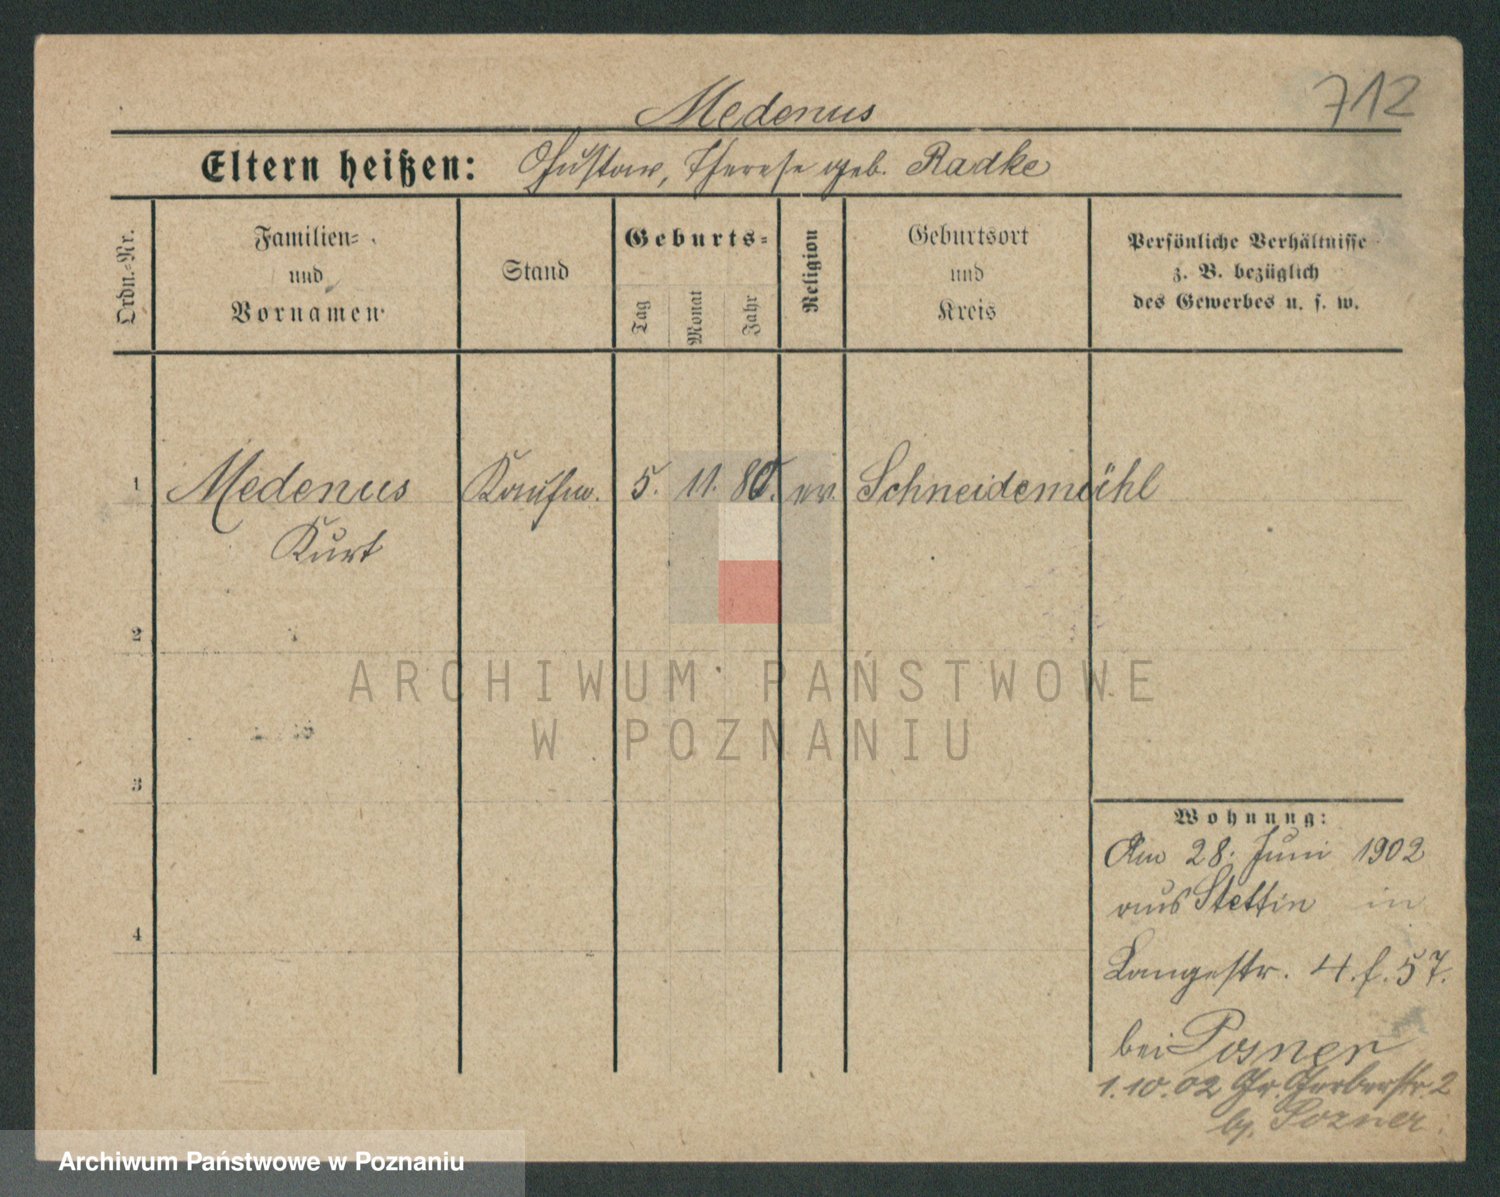 712
Medenus
Eltern heißen: Gustav, Therese geb. Radke
Ordn.-Nr.
Familien-
und
Vornamen
Stand
Geburts-
Tag
Monat
Jahr
Religion
Geburtsort
und
Kreis
Persönliche Verhältnisse
z. B. bezüglich
des Gewerbes u. s. w.
1 Medenus Kaufm. 5. 11. 80. ev. Schneidemühl
Kurt
2
3
4
Wohnung:
Am 28. Juni 1902
aus Stettin in
Langestr. 4. f. 57.
bei Posner
1.10.02 Gr. Gerberstr. 2
bj. Pozner.
ARCHIWUM PAŃSTWOWE
W POZNANIU
Archiwum Państwowe w Poznaniu